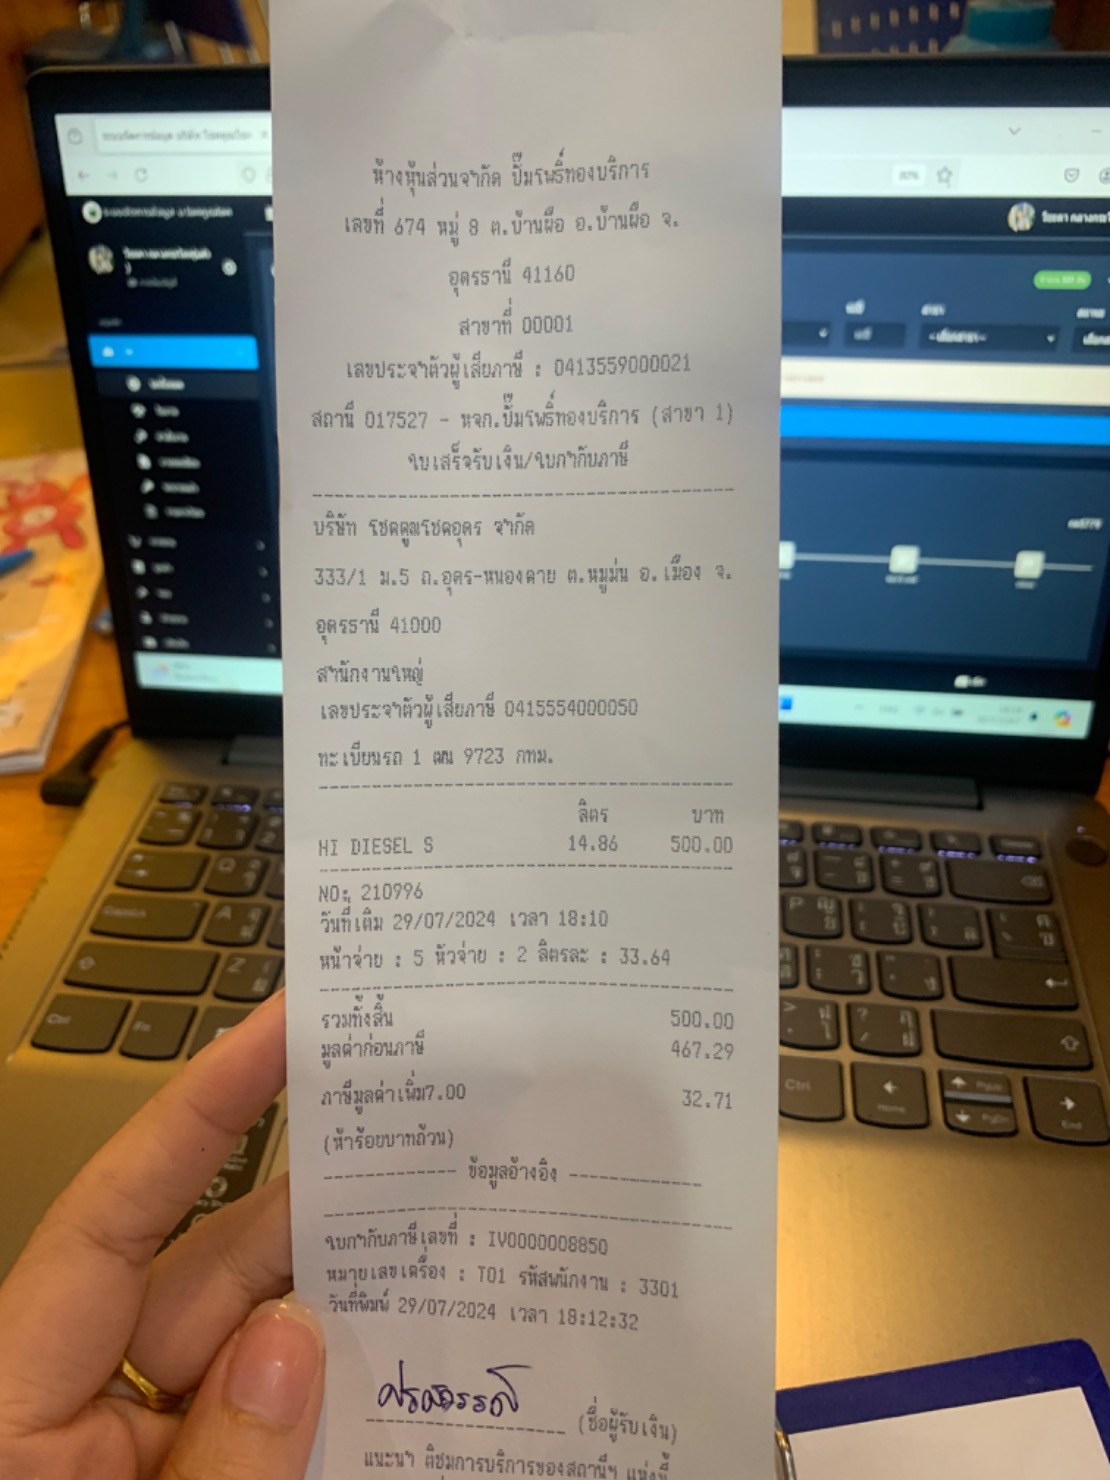 ห้างหุ้นส่วนจำกัด ปั๊มโพธิ์ทองบริการ
เลขที่ 674 หมู่ 8 ต.บ้านผือ อ.บ้านผือ จ.
อุดรธานี 41160
สาขาที่ 00001
เลขประจำตัวผู้เสียภาษี : 0413559000021
สถานี 017527 - หจก.ปั๊มโพธิ์ทองบริการ (สาขา 1)
ใบเสร็จรับเงิน/ใบกำกับภาษี
บริษัท โชคคูณโชคอุดร จำกัด
333/1 ม.5 ถ.อุดร-หนองคาย ต.หมูม่น อ.เมือง จ.
อุดรธานี 41000
สำนักงานใหญ่
เลขประจำตัวผู้เสียภาษี 0415554000050
ทะเบียนรถ 1 ฒน 9723 กทม.
ลิตร บาท
HI DIESEL S 14.86 500.00
NO: 210996
วันที่เติม 29/07/2024 เวลา 18:10
หน้าจ่าย : 5 หัวจ่าย : 2 ลิตรละ : 33.64
รวมทั้งสิ้น 500.00
มูลค่าก่อนภาษี 467.29
ภาษีมูลค่าเพิ่ม7.00 32.71
(ห้าร้อยบาทถ้วน)
ข้อมูลอ้างอิง
ใบกำกับภาษีเลขที่ : IV0000008850
หมายเลขเครื่อง : T01 รหัสพนักงาน : 3301
วันที่พิมพ์ 29/07/2024 เวลา 18:12:32
(ชื่อผู้รับเงิน)
แนะนำ ติชมการบริการของสถานีฯ แห่งนี้